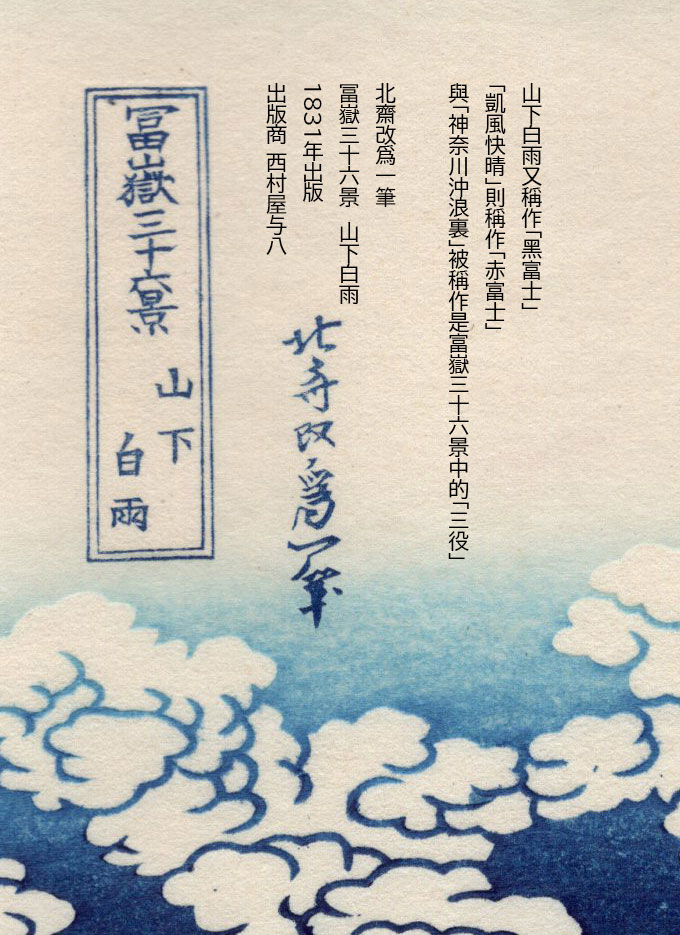 山下白雨又稱作「黑富士」
「凱風快晴」則稱作「赤富士」
與「神奈川沖浪裏」被稱作是富嶽三十六景中的「三役」
北齋改爲一筆
冨嶽三十六景 山下白雨
1831年出版
出版商 西村屋与八
北斎改爲一筆
冨嶽三十六景
山下
白雨